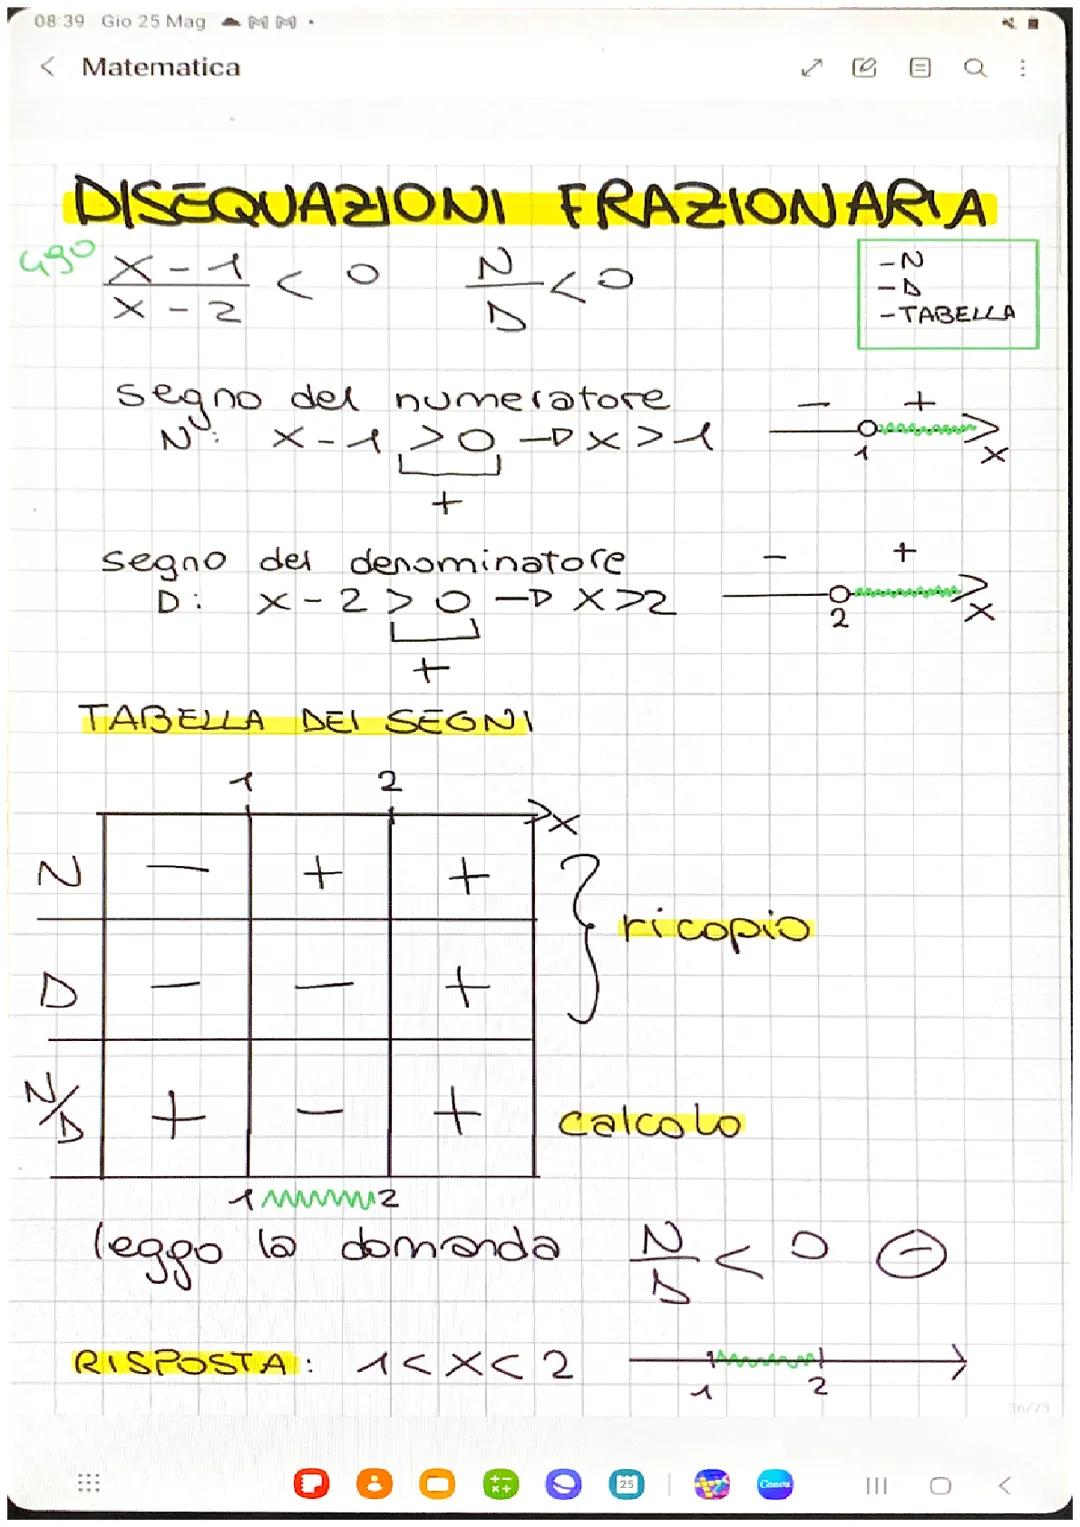 08:39 Gio 25 Mag
< Matematica
DISEQUAZIONI FRAZIONARIA
490 X-1/X-2 < 0 N/D < 0
-N
-D
-TABELLA
segno del numeratore
N: X-1 > 0 → X > 1
- +
1 X
+
segno del denominatore
D: X-2 > 0 → X > 2
- +
2 X
+
TABELLA DEI SEGNI
1 2 X
N - + +
D - - +
ricopio
N/D + - +
calcolo
1 2
leggo la domanda N/D < 0 -
RISPOSTA: 1 < X < 2
1 2
36/73
25
Canva